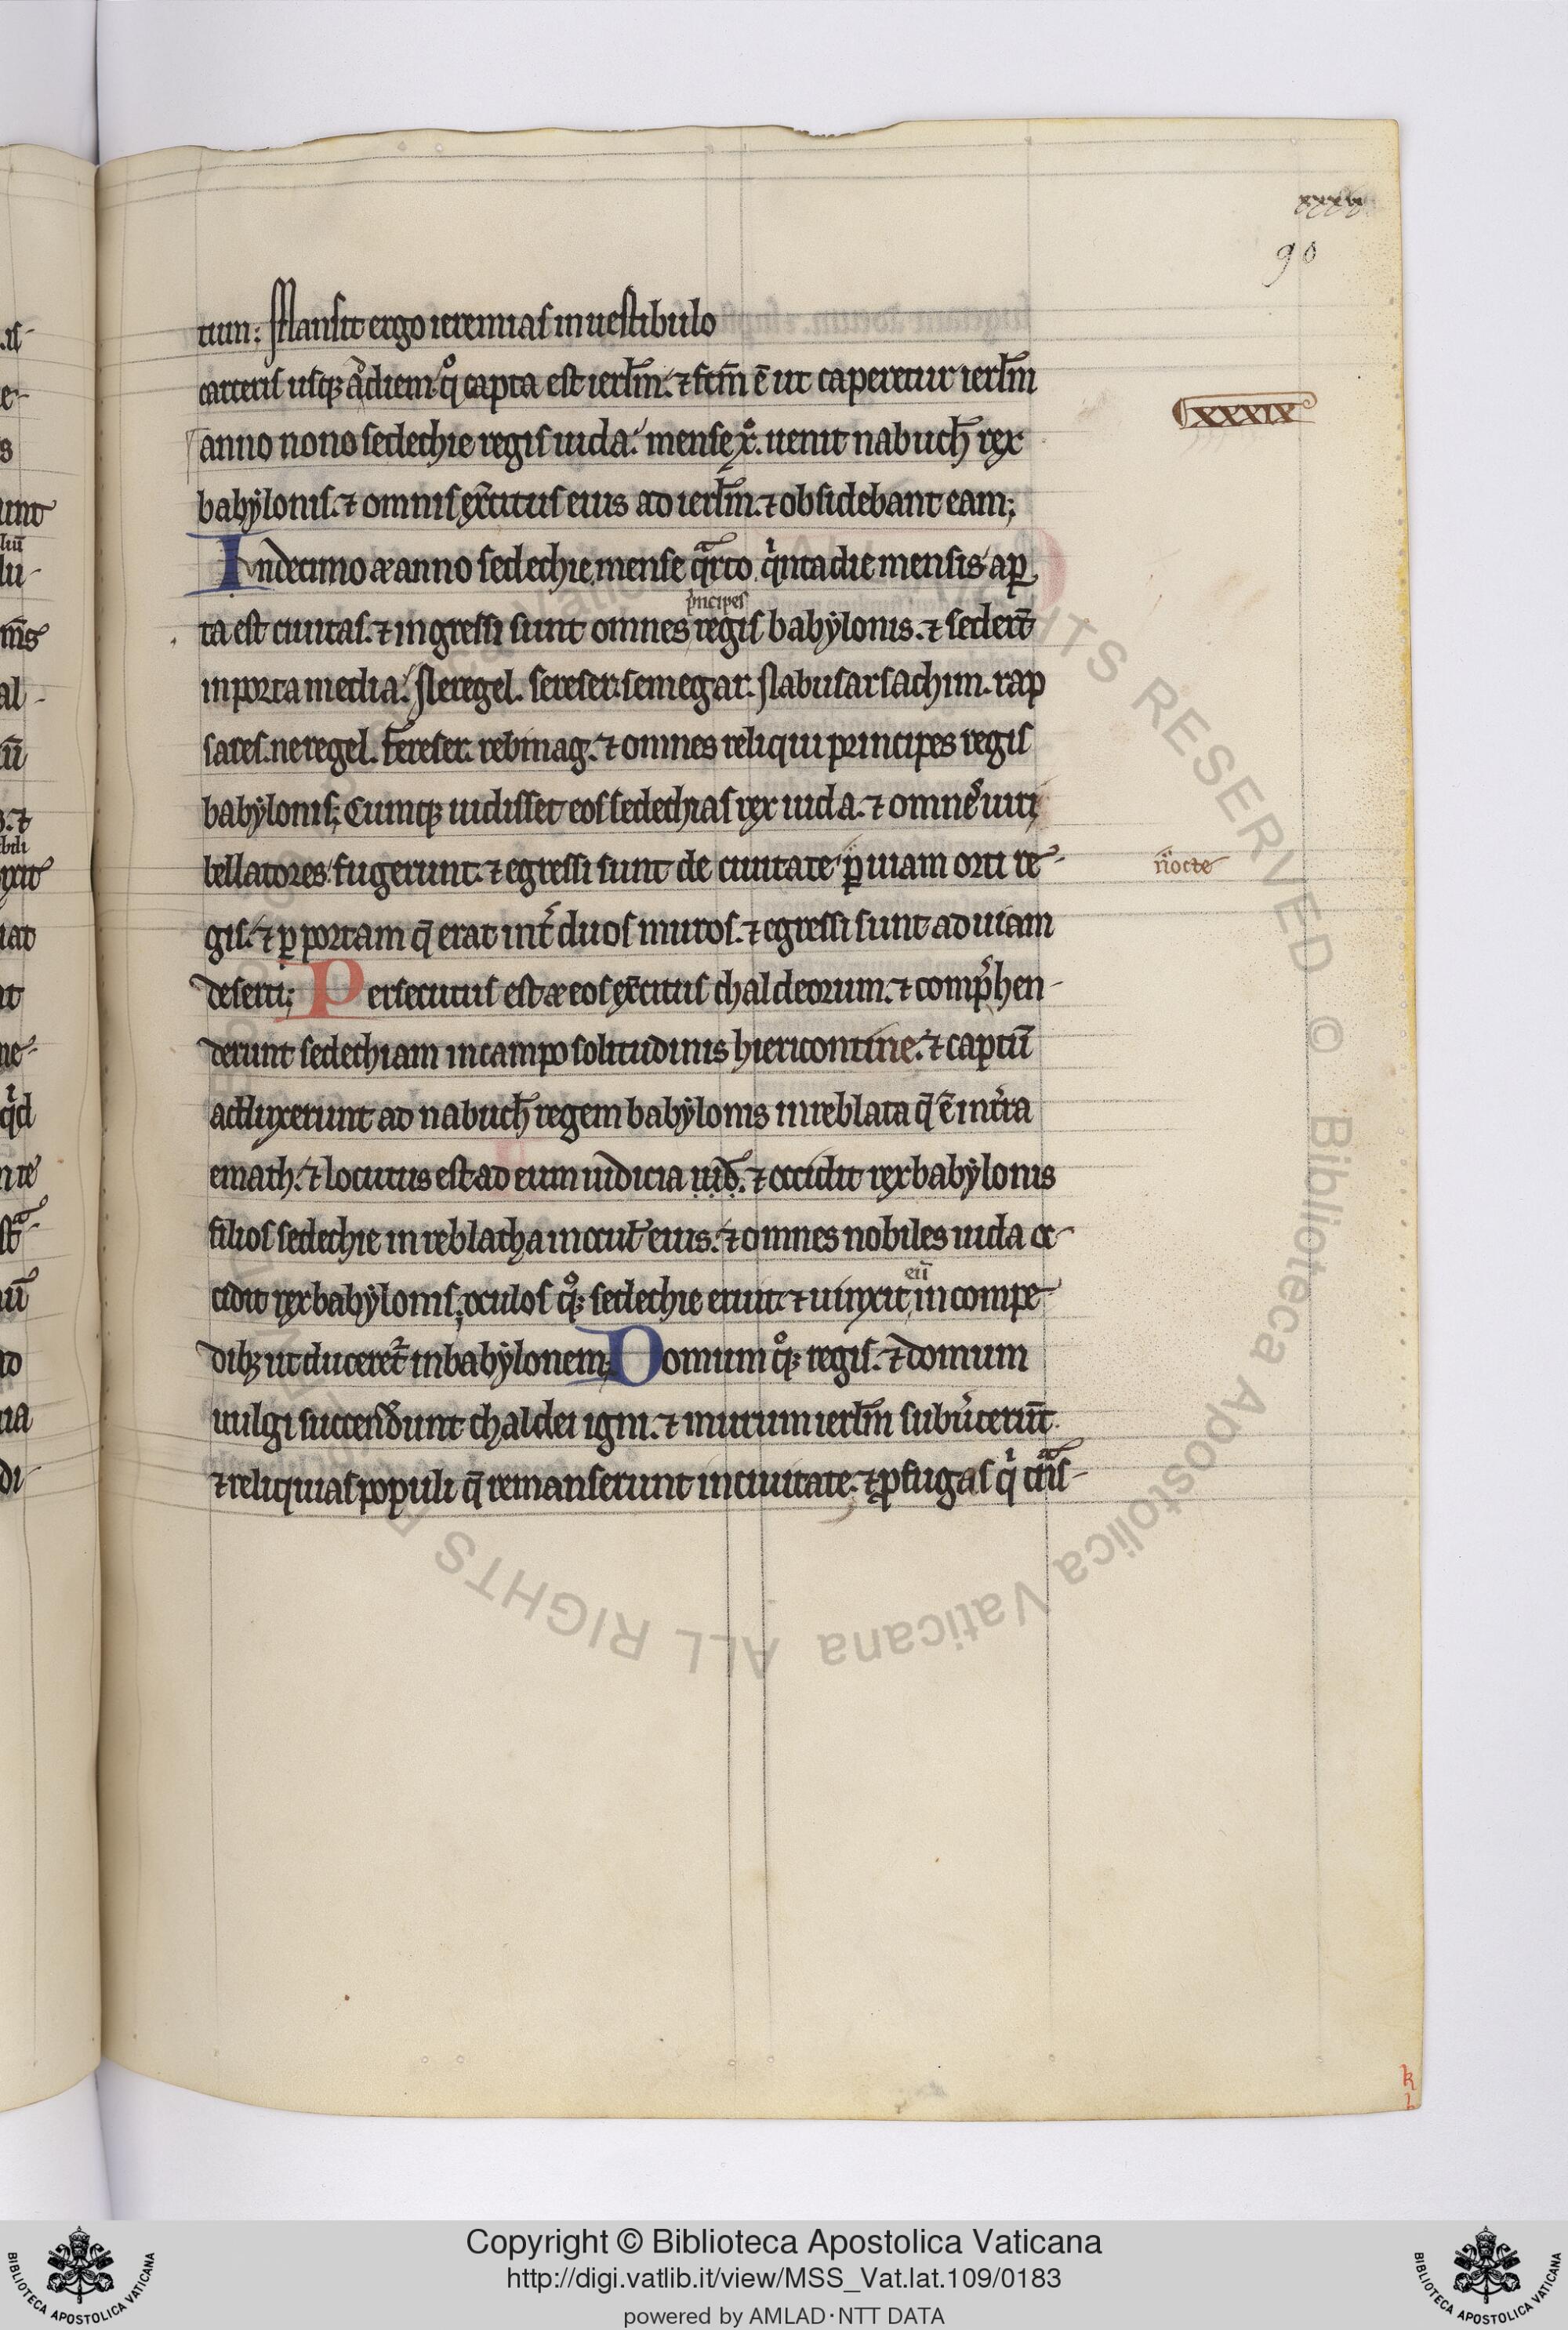 xxxvi
90
tum: Mansit ergo ieremias in uestibulo
carceris usq; ad diem q̊ capta est ierl̄m. ⁊ fctm̄ ē ut caperetur ierl̄m
XXXIX
anno nono sedechie regis iuda. mense x̊. uenit nabuch̄ rex
babylonis. ⁊ omnis exc̄itus eius ad ierl̄m. ⁊ obsidebant eam;
Indecimo aū anno sedechie mense qͣrto qͥnta die mensis ap̱
p̍ncipes
ta est ciuitas. ⁊ ingressi sunt omnes regis babylonis. ⁊ sedert̄
in porta media. Neregel. sereser. semegar. Nabusarsachim. rap
sares. neregel. sereser. rebmag. ⁊ omnes reliqui principes regis
babylonis; Cumq; uidisset eos sedechias rex iuda. ⁊ omnes uiri
bellatores fugerunt. ⁊ egressi sunt de ciuitate ꝑ uiam orti re-
nocte
gis. ⁊ ꝑ portam q̄ erat int̄ duos muros. ⁊ egressi sunt ad uiam
deserti; Persecutus est aū eos exc̄itus chaldeorum. ⁊ comp̄hen-
derunt sedechiam in campo solitudinis hiericontine. ⁊ captū
adduxerunt ad nabuch̄ regem babylonis in reblata q̄ ē in tr̄a
emath. ⁊ locutus est ad eum iudicia iud̄. ⁊ occidit rex babylonis
filios sedechie in reblatha in ocul̄ eius. ⁊ omnes nobiles iuda oc-
eū
cidit rex babylonis; oculos q̊; sedechie eruit. ⁊ uinxit in compe
dib; ut duceret̄ in babylonem; Domum q̊; regis. ⁊ domum
uulgi succend̄unt chaldei igni. ⁊ murum ierl̄m subūterunt̄
⁊ reliquias populi q̄ remanserunt in ciuitate. ⁊ ꝓfugas qͥ tͣns-
Copyright © Biblioteca Apostolica Vaticana
http://digi.vatlib.it/view/MSS_Vat.lat.109/0183
powered by AMLAD·NTT DATA
BIBLIOTECA APOSTOLICA VATICANA
BIBLIOTECA APOSTOLICA VATICANA